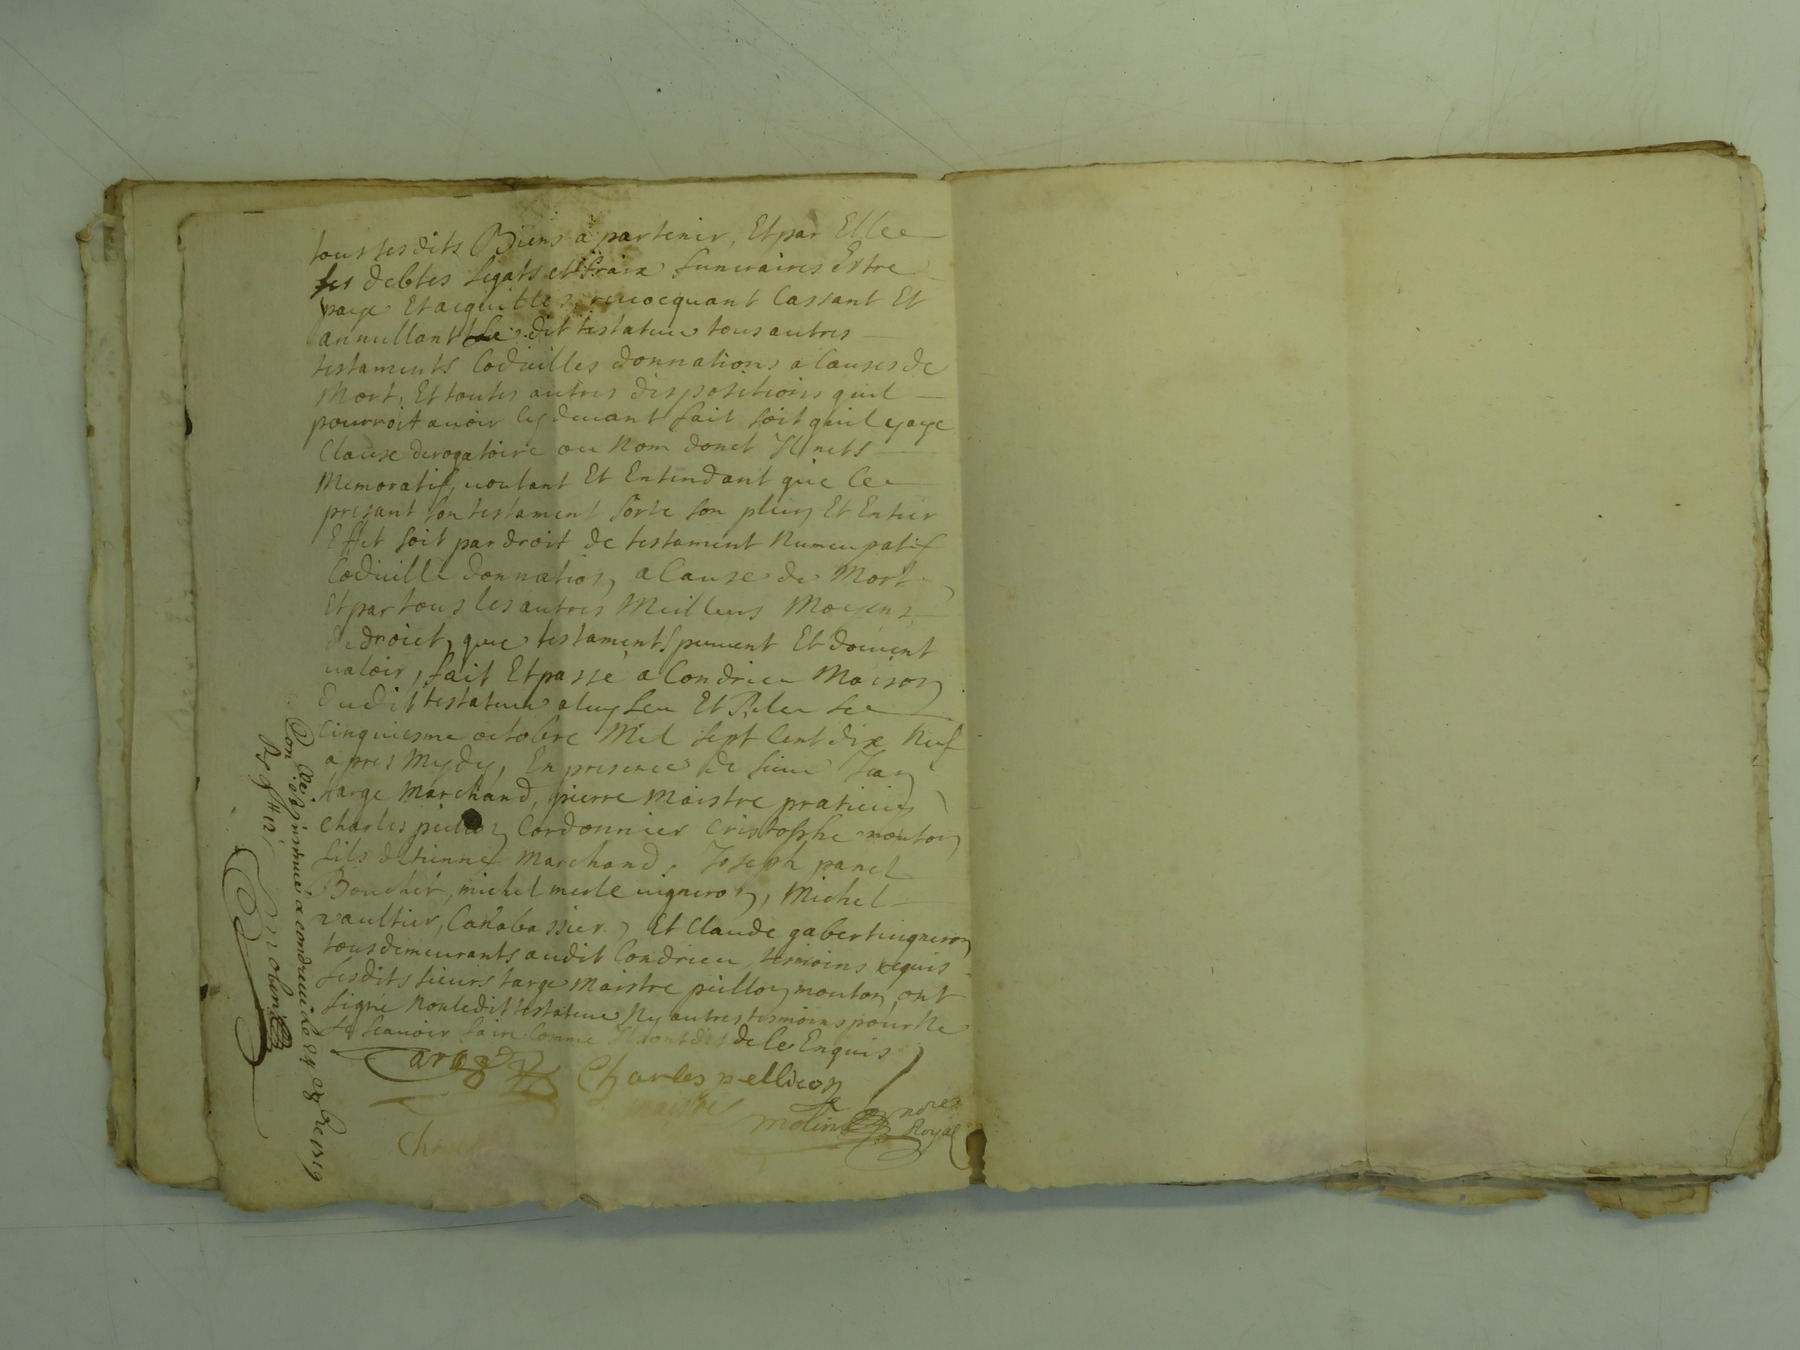 tous sesdits Biens apartenir, Et par Elle
ses debtes legats et fraix funeraires Estre
paye Et acquittes, revocquant Cassant Et
annullant ledit testateur tous autres
testaments Codicilles donnations a Causes de
Mort, Et toutes autres dispositions quil
pourroit avoir cy devant fait soit quil y aye
Clause derogatoire ou Nom donct Il nets
Memoratif, voulant Et Entendant que Ce
presant son testament sorte son plein Et Entier
Effet soit par droit de testament Nuncupatif
Codicille donnation, a Cause de Mort
Et par tous les autres Meilleurs Moyens
de droict que testaments peuvent Et doivent
valoir, fait Et passé a Condrieu Maison
dudit testateur a luy leu Et Releu le
Cinquiesme octobre Mil sept Cent dix Neuf
apres Mydy, En presence de sieur Jean
targe Marchand, pierre Maistre praticien
Charles peillon Cordonnier Cristophe mouton
fils detienne Marchand, Joseph panel
Boucher, michel merle vigneron, Michel
vaultier, Canabassier, Et Claude gabert vigneron
tous demeurants audit Condrieu, tesmoins requis
lesdits sieurs targe Maistre peillon mouton ont
signé Non ledit testateur Ny autres tesmoins pour Ne
le scavoir faire Comme Ils ont dit de Ce Enquis
targe Charles pellicon
maistre
molin
Royal
insinué a condrieu le 24 8bre 1719
molin